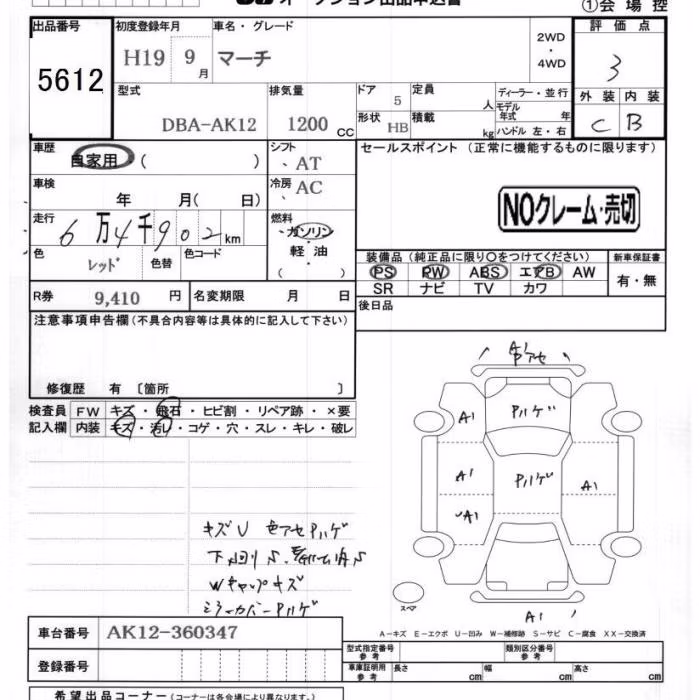 オークション出品申込書
①会場控
出品番号
5612
初度登録年月
H19 9月
車名・グレード
マーチ
2WD
・
4WD
評価点
3
型式
DBA-AK12
排気量
1200 CC
ドア
5
形状
HB
定員
人
積載
kg
ディーラー・並行
モデル年式 年
ハンドル 左・右
外装
C
内装
B
車歴
自家用 ( )
シフト
、AT
車検
年 月( 日)
冷房
、AC
走行
6万4千902km
燃料
、ガソリン
・
軽油
・
( )
色
レッド
色替
色コード
R券
9,410 円
名変期限 月 日
セールスポイント (正常に機能するものに限ります)
NOクレーム・売切
装備品 (純正品に限り○をつけてください)
PS PW ABS エアB AW
SR ナビ TV カワ
新車保証書
有・無
後日品
注意事項申告欄 (不具合内容等は具体的に記入して下さい)
修復歴 有 〔箇所 〕
検査員記入欄
FW キズ・飛石・ヒビ割・リペア跡・×要
内装 キズ・汚レ・コゲ・穴・スレ・キレ・破レ
キズU 色アセPハゲ
下回りS
Wキャップキズ
ミラーカバーPハゲ
色アセ
A1
Pハゲ
A1
Pハゲ
A1
A1
スペア
A1
A-キズ E-エクボ U-凹み W-補修跡 S-サビ C-腐食 XX-交換済
車台番号
AK12-360347
登録番号
型式指定番号 参考
類別区分番号 参考
車庫証明用 参考
長さ cm
幅 cm
高さ cm
希望出品コーナー (コーナーは各会場により異なります。)